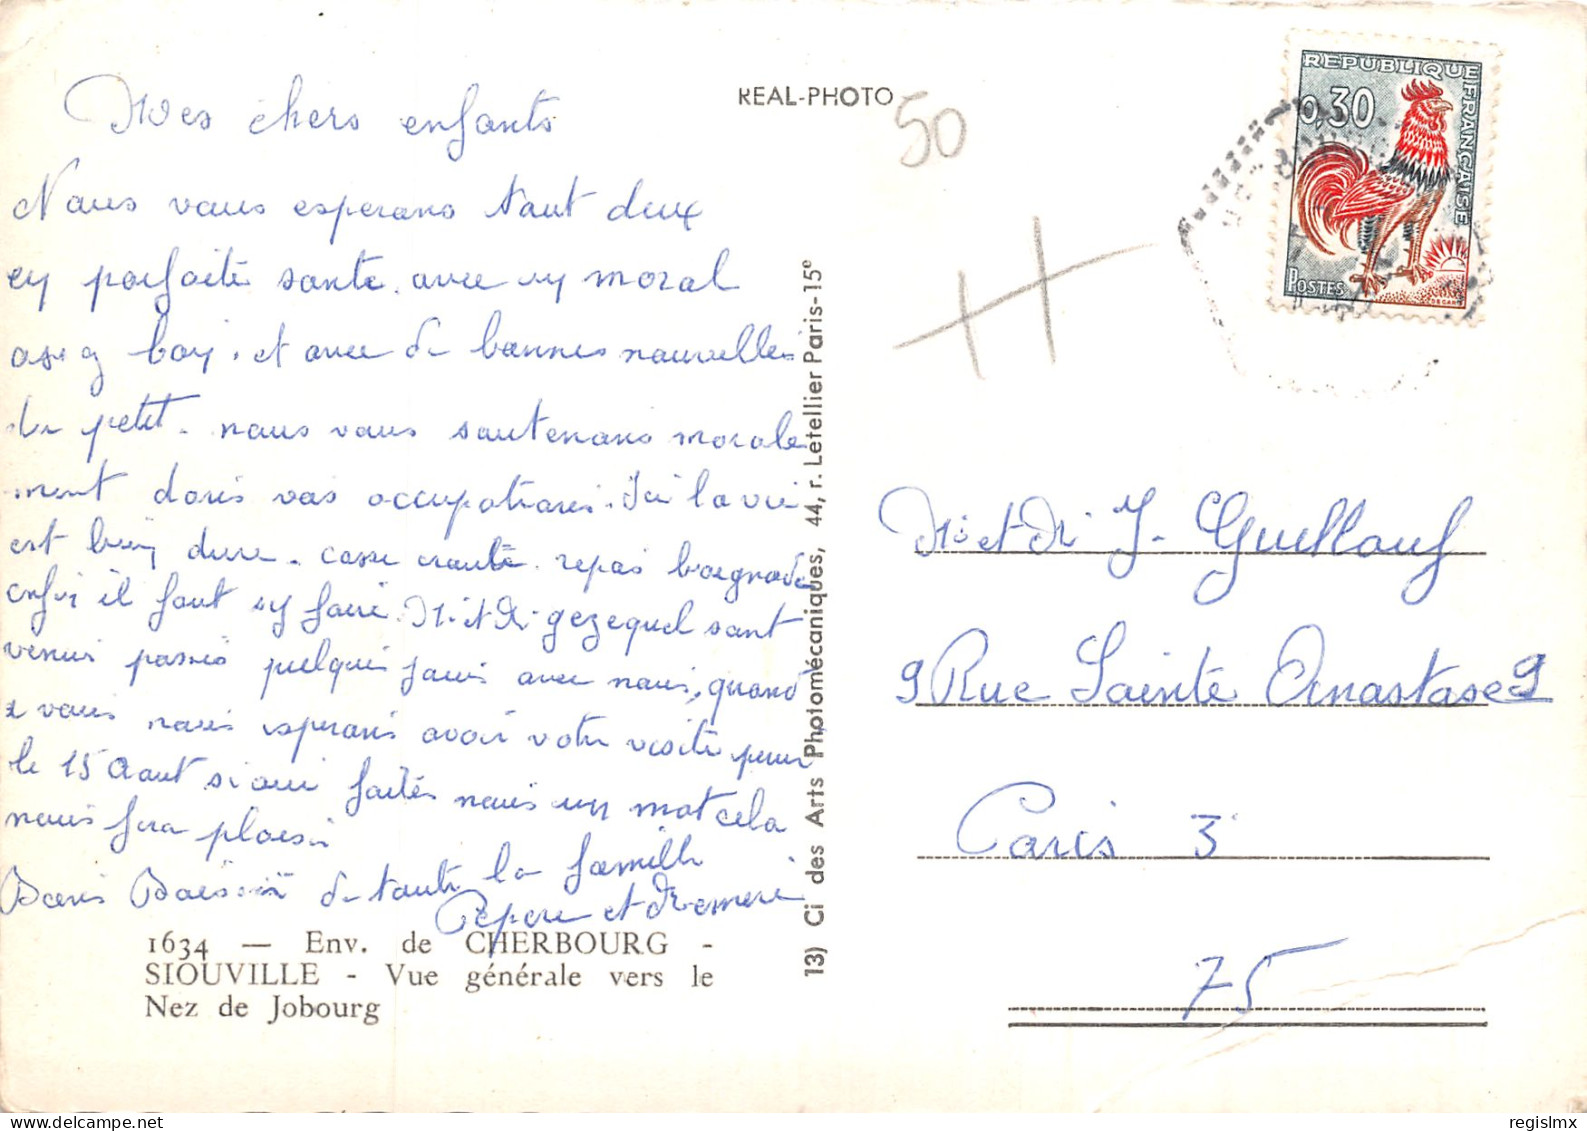 Mes chers enfants
Nous vous esperons tout deux
en parfaite sante. avec un moral
assez bon. et avec de bonnes nouvelles
du petit. nous vous soutenons morale
ment dans vos occupations. Ici la vie
est bien dure. casse croute. repas baignade
enfin il faut s'y faire. Mr et Me gezequel sont
venus passés quelques jours avec nous, quand
a vous nous esperons avoir votre visite pour
le 15 Aout si oui faites nous un mot cela
nous fera plaisir
Bons Baisers de toute la famille
Pepere et Memere
1634 — Env. de CHERBOURG -
SIOUVILLE - Vue générale vers le
Nez de Jobourg
13) Ci des Arts Photomécaniques, 44, r. Letellier Paris-15e
REAL-PHOTO
50
REPUBLIQUE FRANÇAISE
0,30
POSTES
DECARIS
Mr et Me J. Guellouf
9 Rue Sainte Anastase 9
Paris 3
75
regislmx